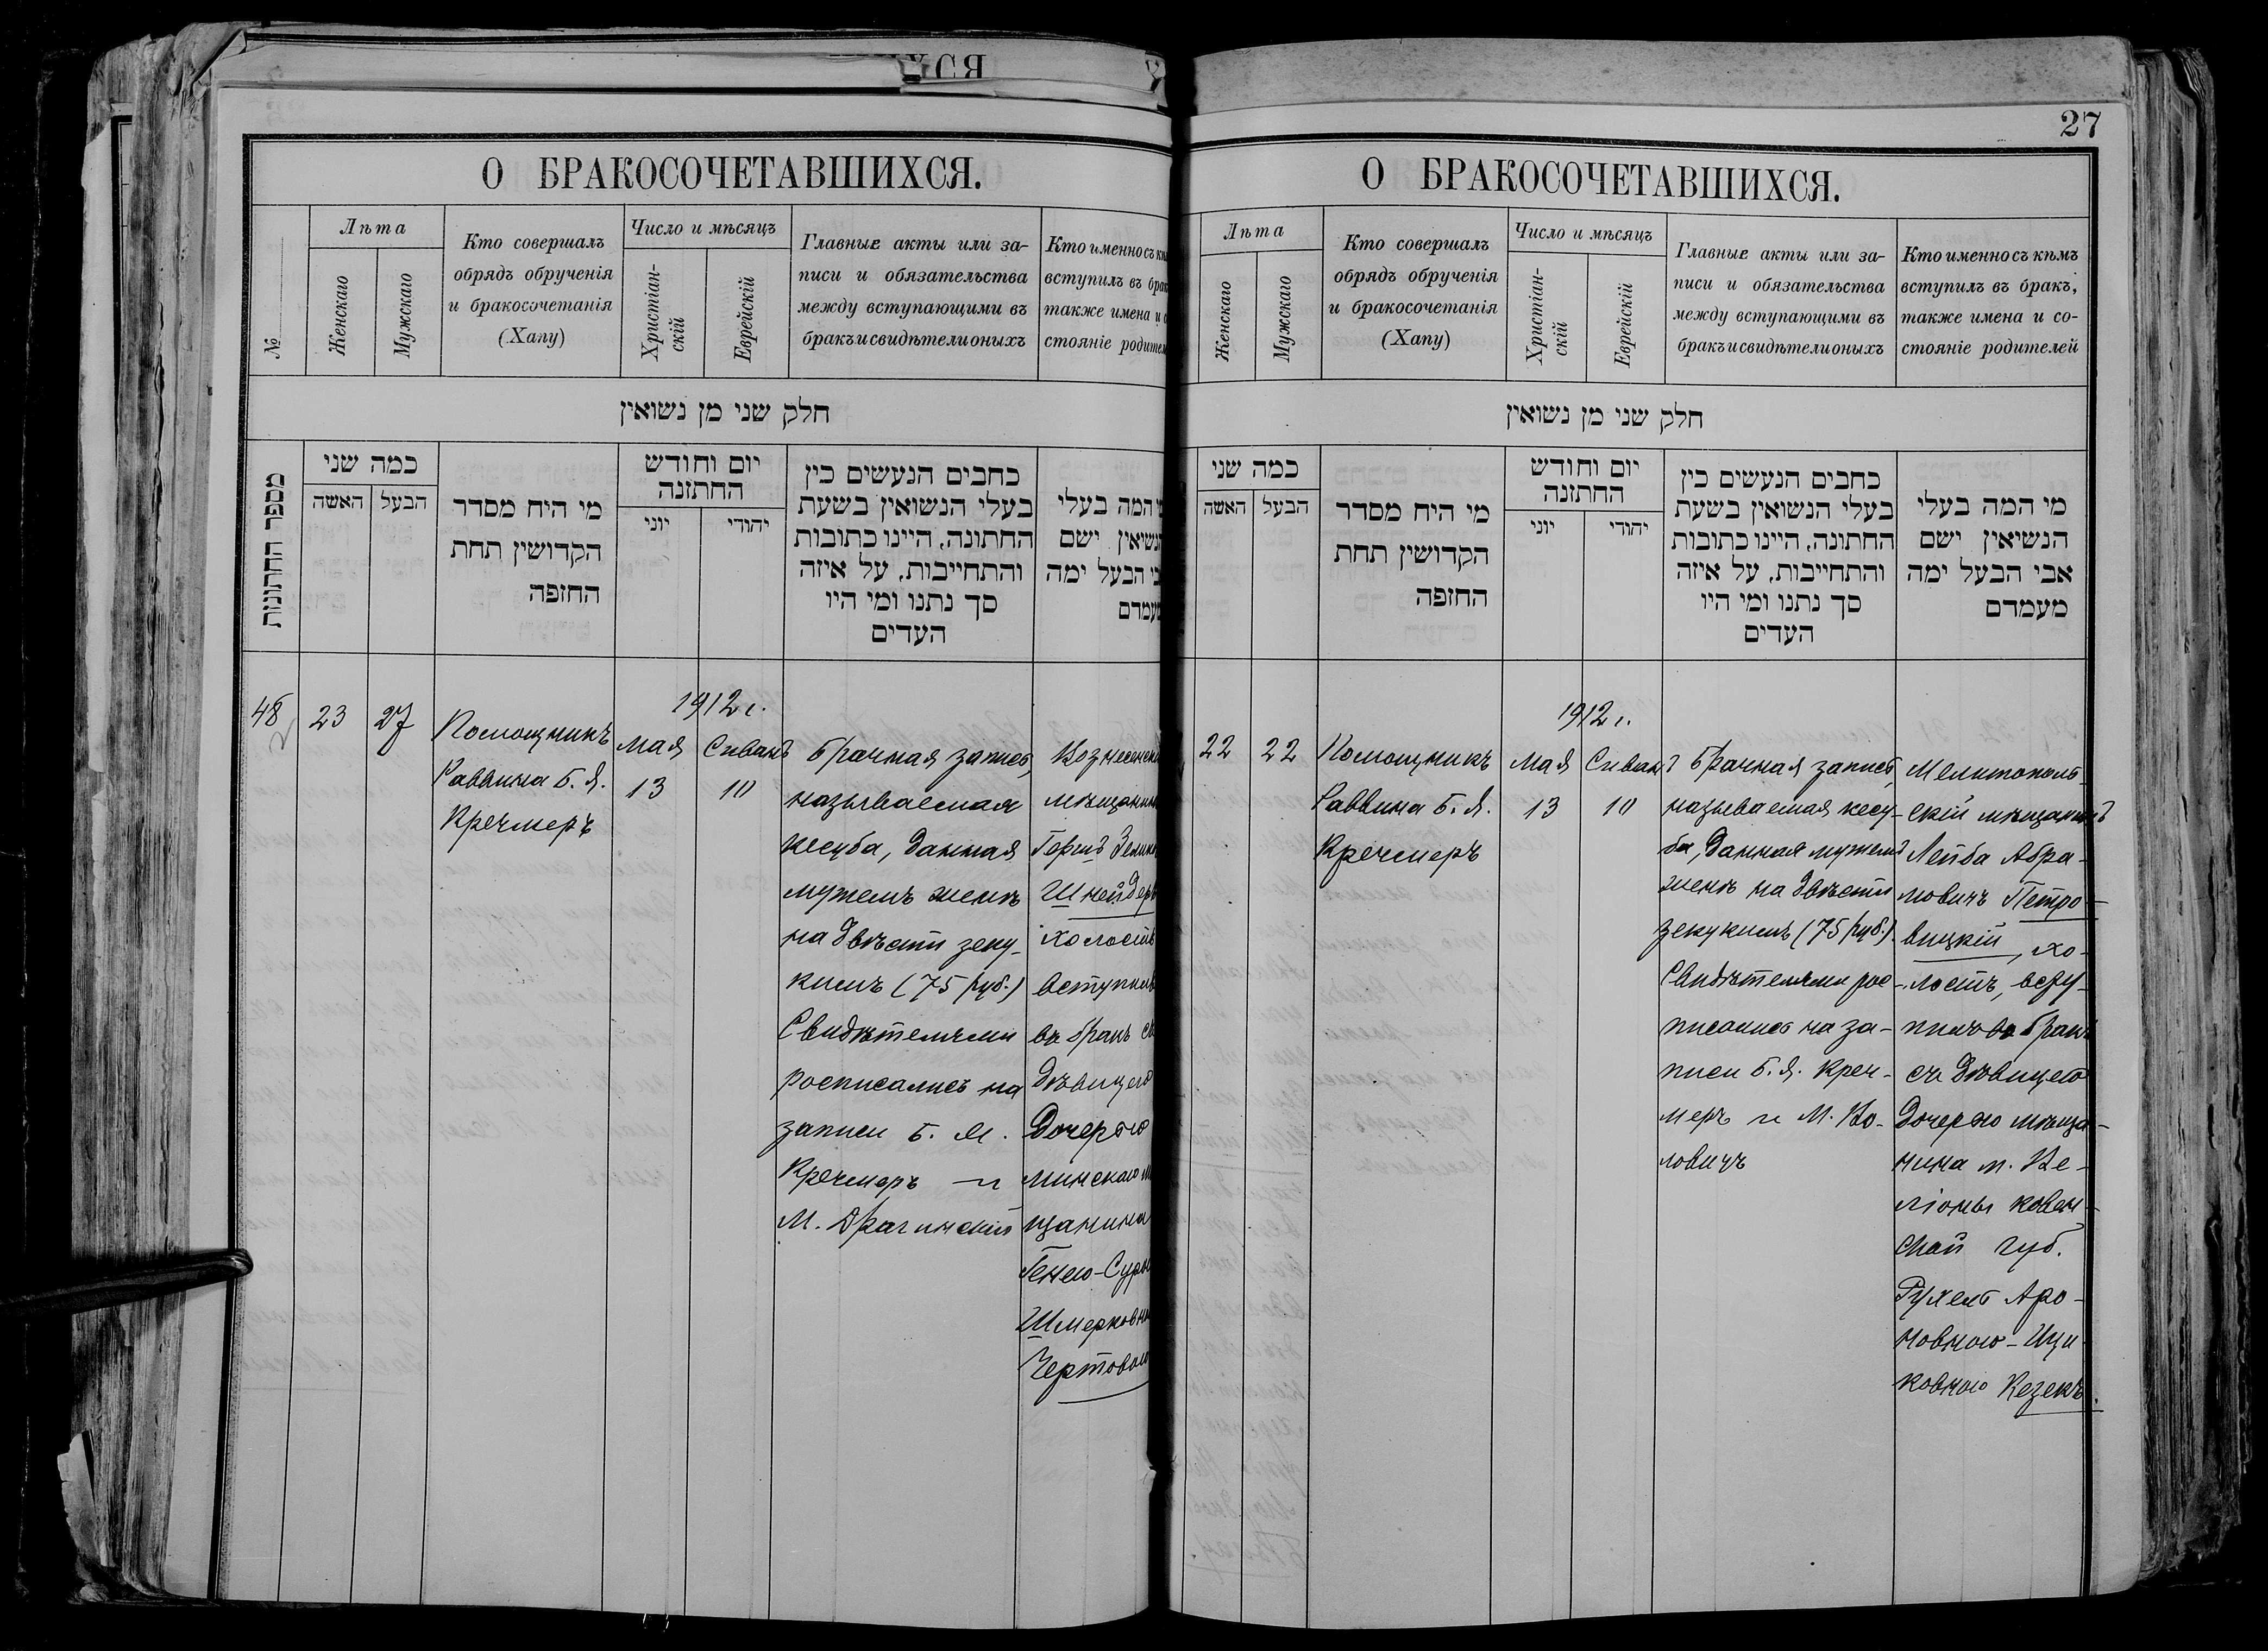 27
О БРАКОСОЧЕТАВШИХСЯ.
№
Лѣта
Женскаго
Мужскаго
Кто совершалъ
обрядъ обрученія
и бракосочетанія
(Хапу)
Число и мѣсяцъ
Христіан-
скій
Еврейскій
Главные акты или за-
писи и обязательства
между вступающими въ
бракъ и свидѣтели оныхъ
Кто именно съ
вступилъ въ
также имена и
стояніе
חלק שני מן נשואין
מספר החתונות
כמה שני
האשה
הבעל
מי היח מסדר
הקדושין תחת
החופה
יום וחודש
החתונה
יוני
יהודי
כתבים הנעשים בין
בעלי הנשואין בשעת
החתונה, היינו כתובות
והתחייבות, על איזה
סך נתנו ומי היו
העדים
המה בעלי
ישם
הבעל ימה
48
23
27
Помощникъ
Раввина Б. Я.
Кречмеръ
1912 г.
Мая
13
Сиванъ
10
Брачная запись,
называемая
кесуба, данная
мужемъ женѣ
на двѣсти зеку-
кимъ (75 руб.)
Свидѣтелями
росписались на
записи Б. Я.
Кречмеръ и
М. Драгинскій
Гершъ
Шнейдеръ
холостъ
вступилъ
въ бракъ
дѣвицею
дочерью
минскаго
щанина
Генею-
Чертовою
О БРАКОСОЧЕТАВШИХСЯ.
Лѣта
Женскаго
Мужскаго
Кто совершалъ
обрядъ обрученія
и бракосочетанія
(Хапу)
Число и мѣсяцъ
Христіан-
скій
Еврейскій
Главные акты или за-
писи и обязательства
между вступающими въ
бракъ и свидѣтели оныхъ
Кто именно съ кѣмъ
вступилъ въ бракъ,
также имена и со-
стояніе родителей
חלק שני מן נשואין
כמה שני
האשה
הבעל
מי היח מסדר
הקדושין תחת
החופה
יום וחודש
החתונה
יוני
יהודי
כתבים הנעשים בין
בעלי הנשואין בשעת
החתונה, היינו כתובות
והתחייבות, על איזה
סך נתנו ומי היו
העדים
מי המה בעלי
הנשיאין ישם
אבי הבעל ימה
מעמדם
22
22
Помощникъ
Раввина Б. Я.
Кречмеръ
1912 г.
Мая
13
Сиванъ
10
Брачная запись,
называемая кесу-
ба, данная мужемъ
женѣ на двѣсти
зекукимъ (75 руб.)
Свидѣтелями рос-
писались на за-
писи Б. Я. Креч-
меръ и М. Во-
ловичъ
Мелитополь-
скій мѣщанинъ
Лейба Абра-
мовичъ Петро-
вицкій, хо-
лостъ, всту-
пилъ въ бракъ
съ дѣвицею
дочерью мѣща-
нина м. Ве-
ліоны Ковен-
ской губ.
Рухель Аро-
новною-Ици-
ковною Кезекъ.